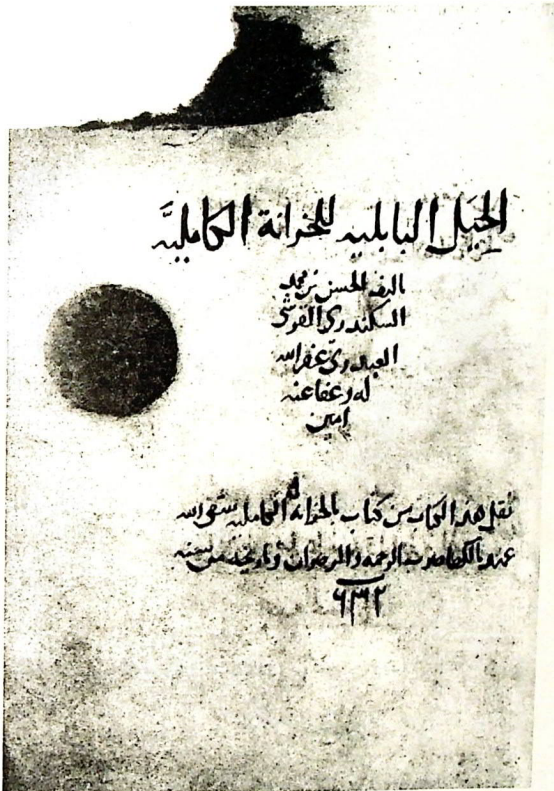 الحيل البابلية للخزانة الكامليَّة
تاليف الحسن بن محمد
السكندري القرشي
العبدري غفر الله
له وعفا عنه
امين
نقل هذا الكتاب من كتاب الخزانة الكاملية سقى الله
عهد مالكها صوب الرحمه والرضوان وتاريخه من سنه
٦٣٢